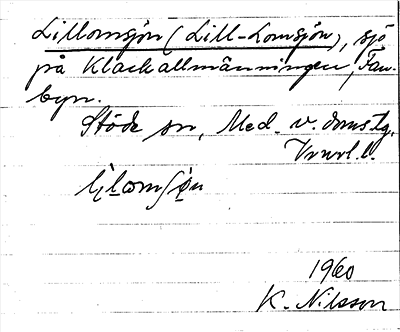 Lillomsjön (Lill-Lomsjön), sjö
på Klackallmänningen, Fan-
byn.
Stöde sn, Med. v. domslg,
Vnrl. l.
l̀ı̣lomʃọ̀n
1960
K. Nilsson